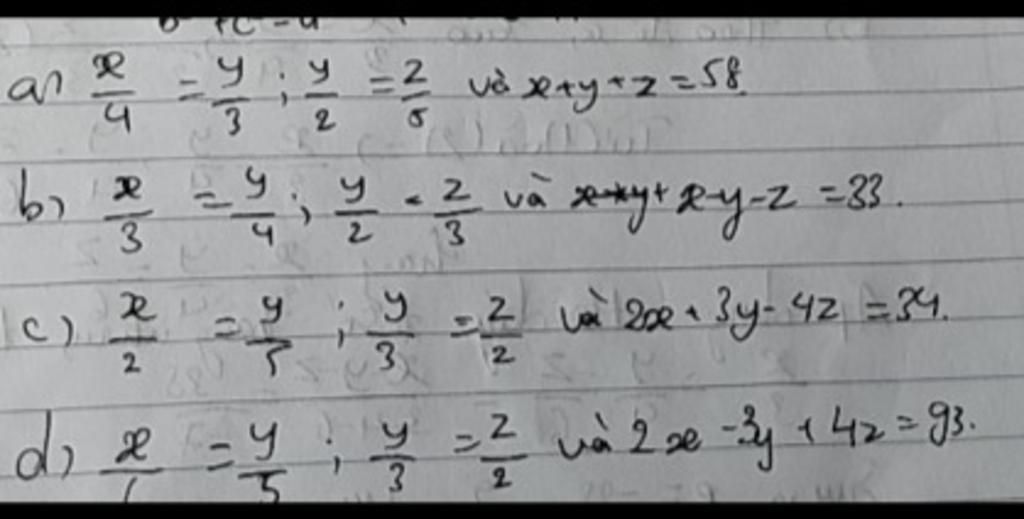 a) x/4 = y/3 ; y/2 = z/5 và x+y+z = 58.
b) x/3 = y/4 ; y/2 = z/3 và x-y-z = 33.
c) x/2 = y/5 ; y/3 = z/2 và 2x + 3y - 4z = 34.
d) x/ = y/5 ; y/3 = z/2 và 2x - 3y + 4z = 93.